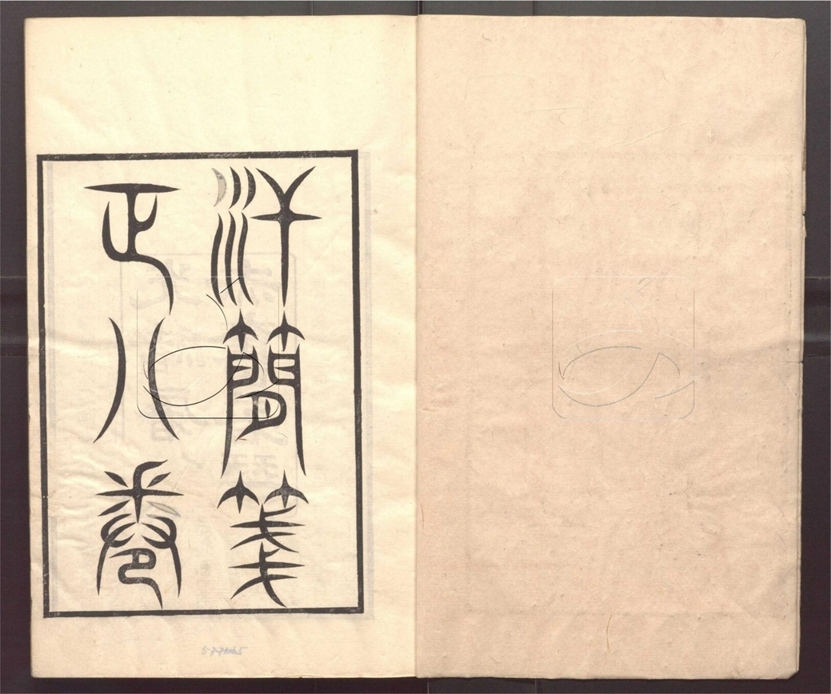 汗簡箋
正八卷